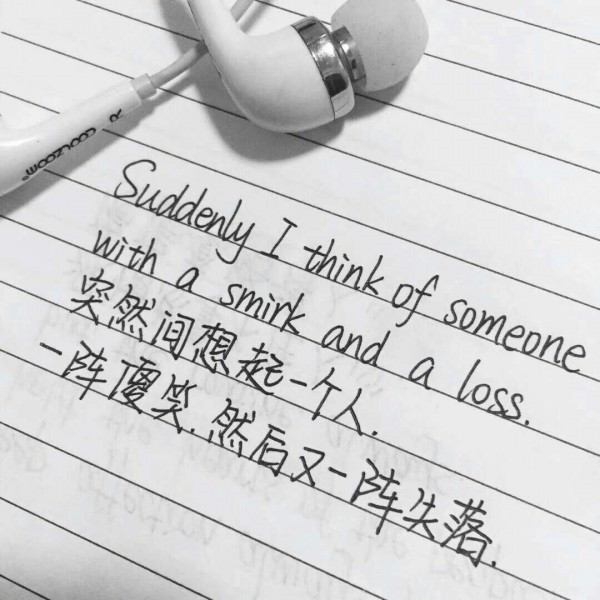 R COOLZOOM
Suddenly I think of someone
with a smirk and a loss.
突然间想起一个人.
一阵傻笑.然后又一阵失落.